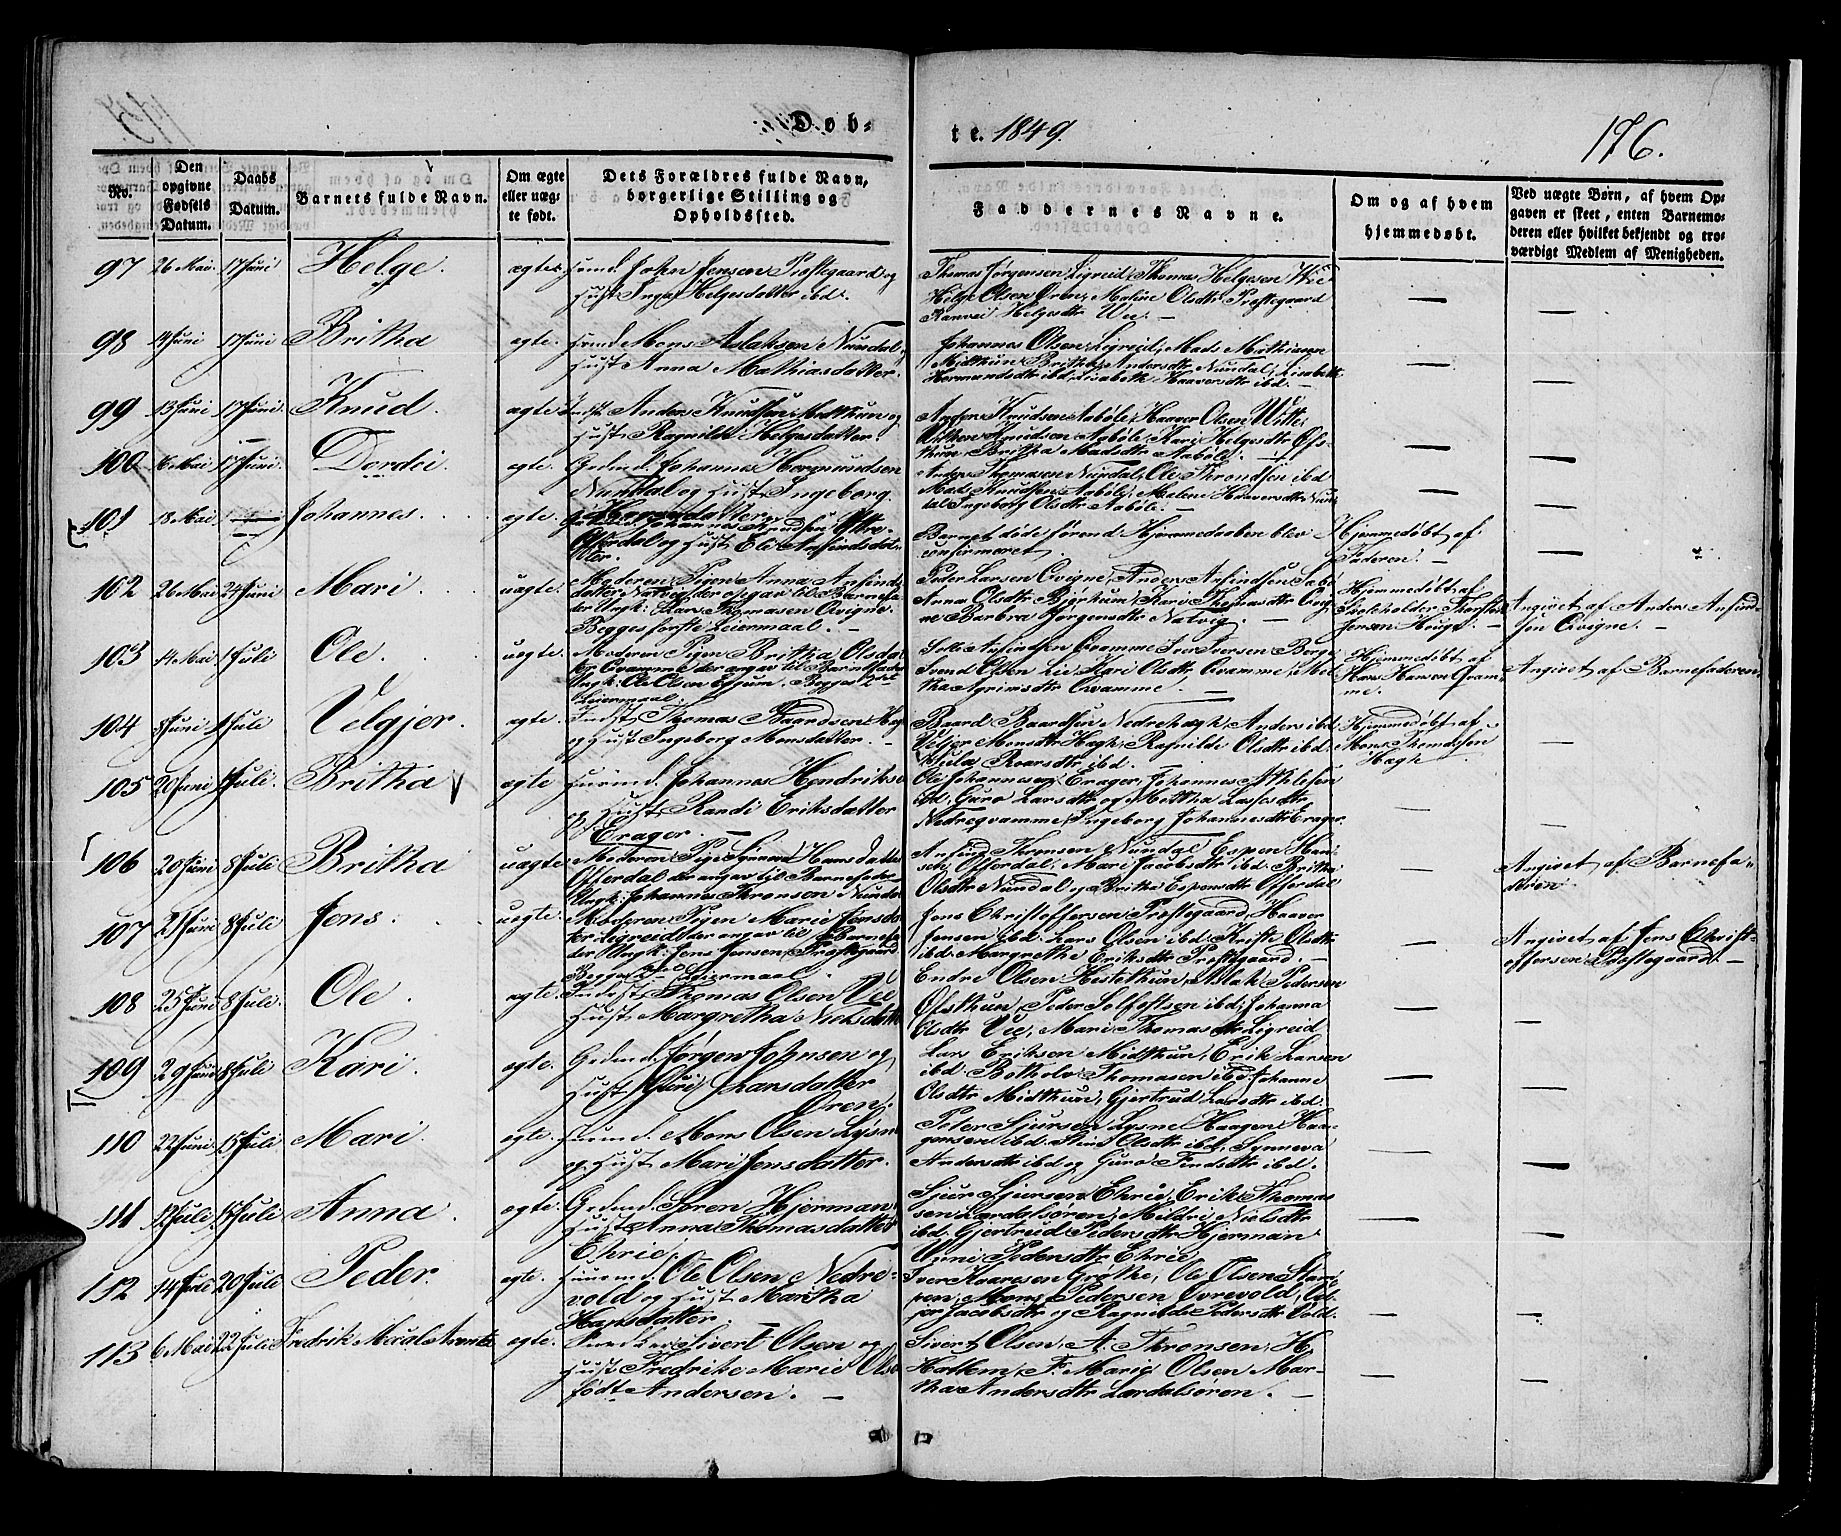 Døb-
te. 1849.
176.
No.
Den opgivne Fødsels Datum.
Daabs Datum.
Barnets fulde Navn.
Om ægte eller uægte født.
Dets Forældres fulde Navn, borgerlige Stilling og Opholdssted.
Faddernes Navne.
Om og af hvem hjemmedøbt.
Ved uægte Børn, af hvem Opgaven er skeet, enten Barnemoderen eller hvilket bekjendt og troværdigt Medlem af Menigheden.
97 26 Mai 17 Juni Helge. ægte John Jensen Præstegaard og
Hust. Inga Helgesdatter ibd.
Thomas Jørgensen Ligreid, Thomas Helgesen Wie
Helge Olsen Øren, Maline Olsdtr Præstegaard
Ranvei Helgesdtr Wee. —
98 17 Juni Britha ægte. Mons Aslaksen Nundal
Hust Anna Mathiasdatter.
Johannes Olsen Ligreid, Mads Mathiasen
Midthun, Britha Andersdtr Nundal, Lisabeth
Hermundsdtr ibd, Lisabeth Haaversdtr ibd. —
99 13 Juni 17 Juni Knud. ægte Anders Knudsen Midthun og
Hust. Ragnilde Helgesdatter.
Knudsen Aabøle, Haaver Olsen
Knudsen Aabøle, Kari Helgesdtr Ofs-
thun, Britha Madsdtr Aabøle. —
100 Mai 17 Juni. Dordei ægte. Gdmd. Johannes Hermundsen
Nundal og Hust. Ingeborg
Anders Thomasen Nundal, Ole Thronsen ibd
Mads Knudsen Aabøle, Malene Haaversdtr Nun-
dal, Ingeborg Olsdtr Aabøle. —
101 18 Mai Johannes. ægte.
Offerdal og Hust. Eli Anfindsdat-
ter.
Barnet døde førend Hjemmedaaben blev
confirmeret.
Hjemmedøbt af
Faderen.
102 26 Mai 24 Juni Mari. uægte. Moderen Pigen Anna Anfinds-
datter der opgav til Barnefa-
der Ungk. Lars Thomasen Qvigne.
Begges første Leiermaal. —
Peder Larsen Qvigne, Anders Anfindsen
Anna Olsdtr Bjørkum, Kari Thomasdtr Qvig-
ne Barbra Jørgensdtr Nalvig. —
Hjemmedøbt af
Skoleholder
Jensen Hauge. —
Angivet af Anders Anfind-
sen Qvigne. —
103 14 Mai 1 Juli Ole. uægte. Moderen Pigen Britha Olsdat-
ter Qvamme der angav til Barnefader
Ungk. Ole Olsen Begges 1ste
Leiermaal
Anfindsen Qvamme Iver Iversen Berge
Svend Olsen Lie, Kari Olsdtr Qvamme, Met-
tha Agrimsdtr Qvamme. —
Hjemmedøbt af
Hans Hansen Qvam-
me.
Angivet af Barnefaderen
104 Juni 1 Juli Velgjer. ægte. Indst. Thomas Baardsen Hag
og Hust. Ingeborg Monsdatter. —
Baard Baardsen Nedrehagh, Anders ibd
Veljer Monsdtr Hagh, Ragnilde Olsdtr ibd
ibd. —
Hjemmedøbt af
Mons
Hagh
105 20 Juni 1 Juli. Britha ægte Huusmd. Johannes Hendriks
og Hust. Randi Eriksdatter
Erager. —
Ole Johannesen Erager, Johannes
ibd, Guro Larsdtr og Mettha Lassesdtr
Nedreqvamme, Ingeborg Johannesdtr Erager.
106 20 Juni 8 Juli Britha uægte Moderen Pige Synneva Hansdatter
Offerdal der angav til Barnefader
Ungk. Johannes Thronson Nundal
Anfind Thronsen Nundal Espen Han-
sen Offerdal, Mari Jacobsdtr ibd, Britha
Olsdtr Nundal og Britha Espensdtr Offerdal
Angivet af Barnefa-
deren
107 21 Juni 8 Juli Jens. uægte. Moderen Pigen Marie Jensdat-
ter Ligreid der angav til Barnefa-
der Ungk. Jens Jensen Præstegaard
Begges Leiermaal
Jens Christoffersen Præstegaard, Haaver
Jensen ibd. Lars Olsen ibd, Kristi Olsdtr
ibd Margrethe Eriksdtr Præstegaard. —
Angivet af Jens Christ-
offersen Præstegaard —
108 25 Juni 8 Juli. Ole. ægte. Indst. Thomas Olsen Vee
Hust. Margretha Nielsdatter
Endre Olsen Hestethun, Aslak Pedersen
Ofsthun, Peder ibd, Johanna
Olsdtr Vee, Mari Thomasdtr Ligreid
109 29 Juni 8 Juli Kari. ægte. Gdmd. Jørgen Johnsen og
Hust. Larsdatter
Øren.
Lars Eriksen Midthun, Erik Larsen
ibd. Botholv Thomasen ibd, Johanne
Olsdtr Midthun, Gjertrud Larsdtr ibd.
110 22 Juni 15 Juli Mari. ægte. Huusmd. Mons Olsen Lysne
og Hust. Mari Jensdatter.
Peter Sjursen Lysne Haagen Haa-
gensen ibd. Olsdtr ibd, Synneva
Andersdtr ibd og Guro Findsdtr ibd.
111 12 Juli 15 Juli Anna. ægte. Gdmd. Søren Hjerman
Hust. Anna Thomasdatter
Ethrie.
Sjur Sjursen Ethrie, Erik Thomas-
sen Lærdalsøren, Mildri Nielsdtr
ibd. Gjertrud Pedersdtr Hjerman
Anni Pedersdtr Ethrie
112 14 20 Juli Peder. ægte. Huusmd. Ole Olsen Nedre-
vold og Hust. Martha
Hansdatter. —
Iver Grøthe, Ole Olsen
Mons Pedersen Øvrevold,
Jacobsdtr og Ragnilde Pedersdtr Vold.
113 6 Mai 22 Juli Fredrik ægte. Sivert Olsen og
Hust. Fredrike Marie Olsen
født Andersen. —
Sivert Olsen, A. Thronsen, H.
Hatlem, F. Marie Olsen Mar-
tha Andersdtr Lærdalsøren. —